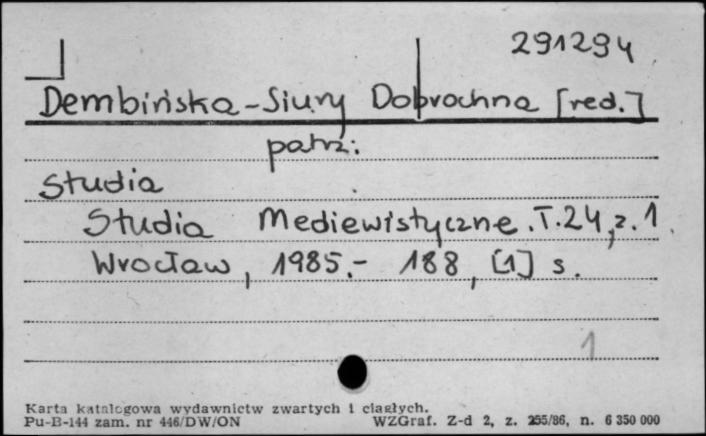 291294
Dembińska-Siury Dobrochna [red.]
patrz:
Studia
Studia Mediewistyczne. T.24, z.1
Wrocław, 1985.- 188, [1] s.
1
Karta katalogowa wydawnictw zwartych i ciągłych.
Pu-B-144 zam. nr 446/DW/ON WZGraf. Z-d 2, z. 255/86, n. 6 350 000